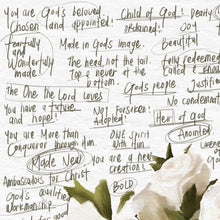 You are God's beloved. Child of God:
Chosen and appointed! redeemed:
Fearfully and Wonderfully made! Made in God's image. Beautiful
The head not the tail. fully redeemed
Top & never @ the bottom. Called & known
The One the Lord loves God's people. Justified
You have a future and hope! Not Forsaken: adopted! No condemn
Heir of God
You are More than Conqueror through Him. ONE spirit with Him Anointed
Made New you are a new creation!
Ambassadors for Christ BOLD
God's
Workmanship